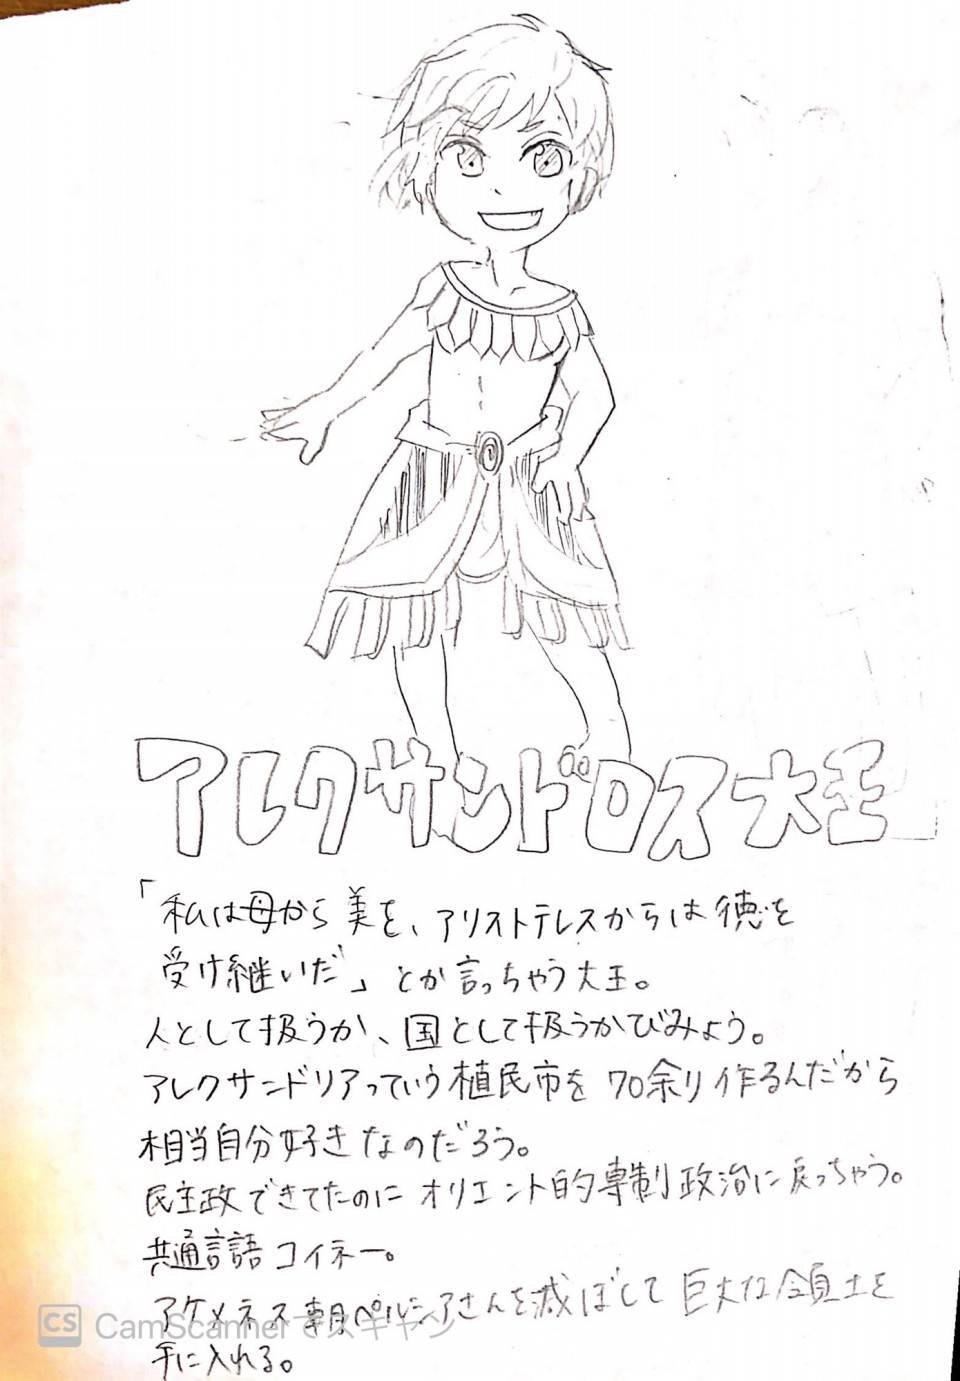 アレクサンドロス大王
「私は母から美を、アリストテレスからは徳を
受け継いだ」とか言っちゃう大王。
人として扱うか、国として扱うかびみょう。
アレクサンドリアっていう植民市を70余り作るんだから
相当自分好きなのだろう。
民主政できてたのにオリエント的専制政治に戻っちゃう。
共通言語コイネー。
アケメネス朝ペルシアさんを滅ぼして巨大な領土を
手に入れる。
CS CamScannerでスキャン